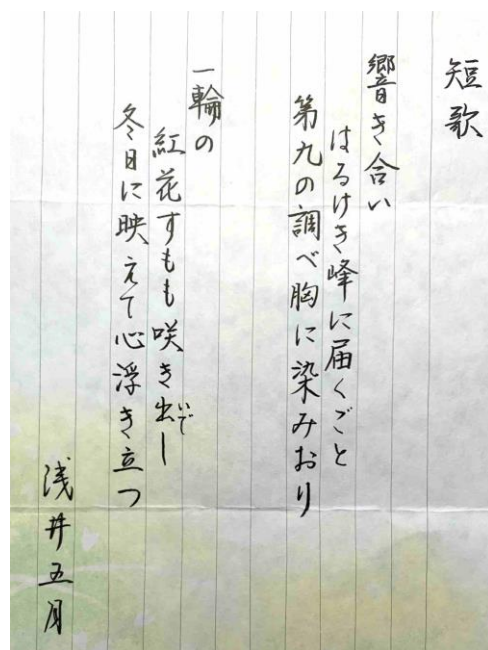 短歌
響き合い
はるけき峰に届くごと
第九の調べ胸に染みおり
一輪の
紅花すもも咲き出し
いで
冬日に映えて心浮き立つ
浅井五月